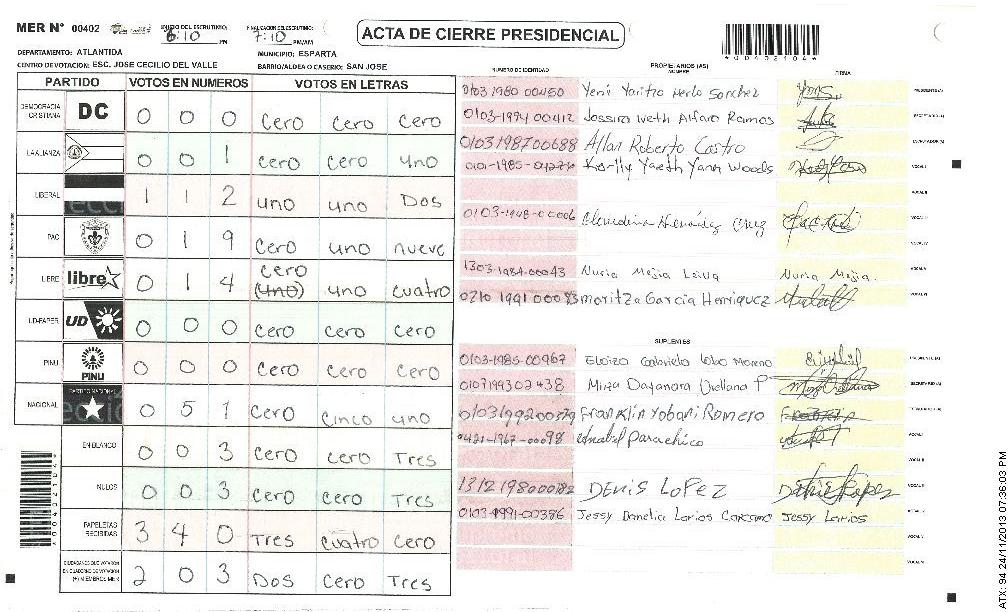 MER Nº 00402
INICIO DEL ESCRUTINIO: 6:10 PM
FINALIZACION DEL ESCRUTINIO: 7:10 PM/AM
ACTA DE CIERRE PRESIDENCIAL
*00402104*
DEPARTAMENTO: ATLANTIDA
MUNICIPIO: ESPARTA
CENTRO DE VOTACION: ESC. JOSE CECILIO DEL VALLE
BARRIO/ALDEA O CASERIO: SAN JOSE
PARTIDO VOTOS EN NUMEROS VOTOS EN LETRAS
DEMOCRACIA CRISTIANA DC 0 0 0 Cero Cero Cero
LA ALIANZA 0 0 1 Cero Cero uno
LIBERAL 1 1 2 uno uno Dos
PAC 0 1 9 Cero uno nueve
LIBRE libre 0 1 4 Cero (uno) uno cuatro
UD-FAPER UD 0 0 0 Cero Cero Cero
PINU PINU 0 0 0 Cero Cero Cero
NACIONAL PARTIDO NACIONAL 0 5 1 Cero Cinco uno
EN BLANCO 0 0 3 Cero Cero Tres
NULOS 0 0 3 Cero Cero Tres
PAPELETAS RECIBIDAS 3 4 0 Tres Cuatro Cero
CIUDADANOS QUE VOTARON EN CUADERNO DE VOTACION (+) MIEMBROS MER 2 0 3 Dos Cero Tres
NUMERO DE IDENTIDAD PROPIETARIOS (AS) NOMBRE FIRMA
0103 1980 00450 Yeni
PRESIDENTE (A)
0103-1994 00412 Alfaro Ramos
SECRETARIO (A)
0103198700688 Allan Roberto Castro
ESCRUTADOR (A)
Yaneth Woods
VOCAL I
VOCAL II
0103-1948-00006 Cruz
VOCAL III
VOCAL IV
1303-1984-00043 Nuria Mejia Leiva Nuria Mejia.
VOCAL V
0210 1991 00083 maritza Garcia Henriquez
VOCAL VI
SUPLENTES
0103-1985-00967 Gabriela Lobo Moreno
PRESIDENTE (A)
0107199302438 Mirza Dayanara Orellana P
SECRETARIO (A)
0103199200579 Franklin Yobani Romero
0421-1967-00098 Anabel
VOCAL I
VOCAL II
1312198000182 DENIS LOPEZ
0103-1991-00386 Jessy Danelia Larios Jessy Larios
VOCAL V
VOCAL VI
ATX: 94 24/11/2013 07:36:03 PM